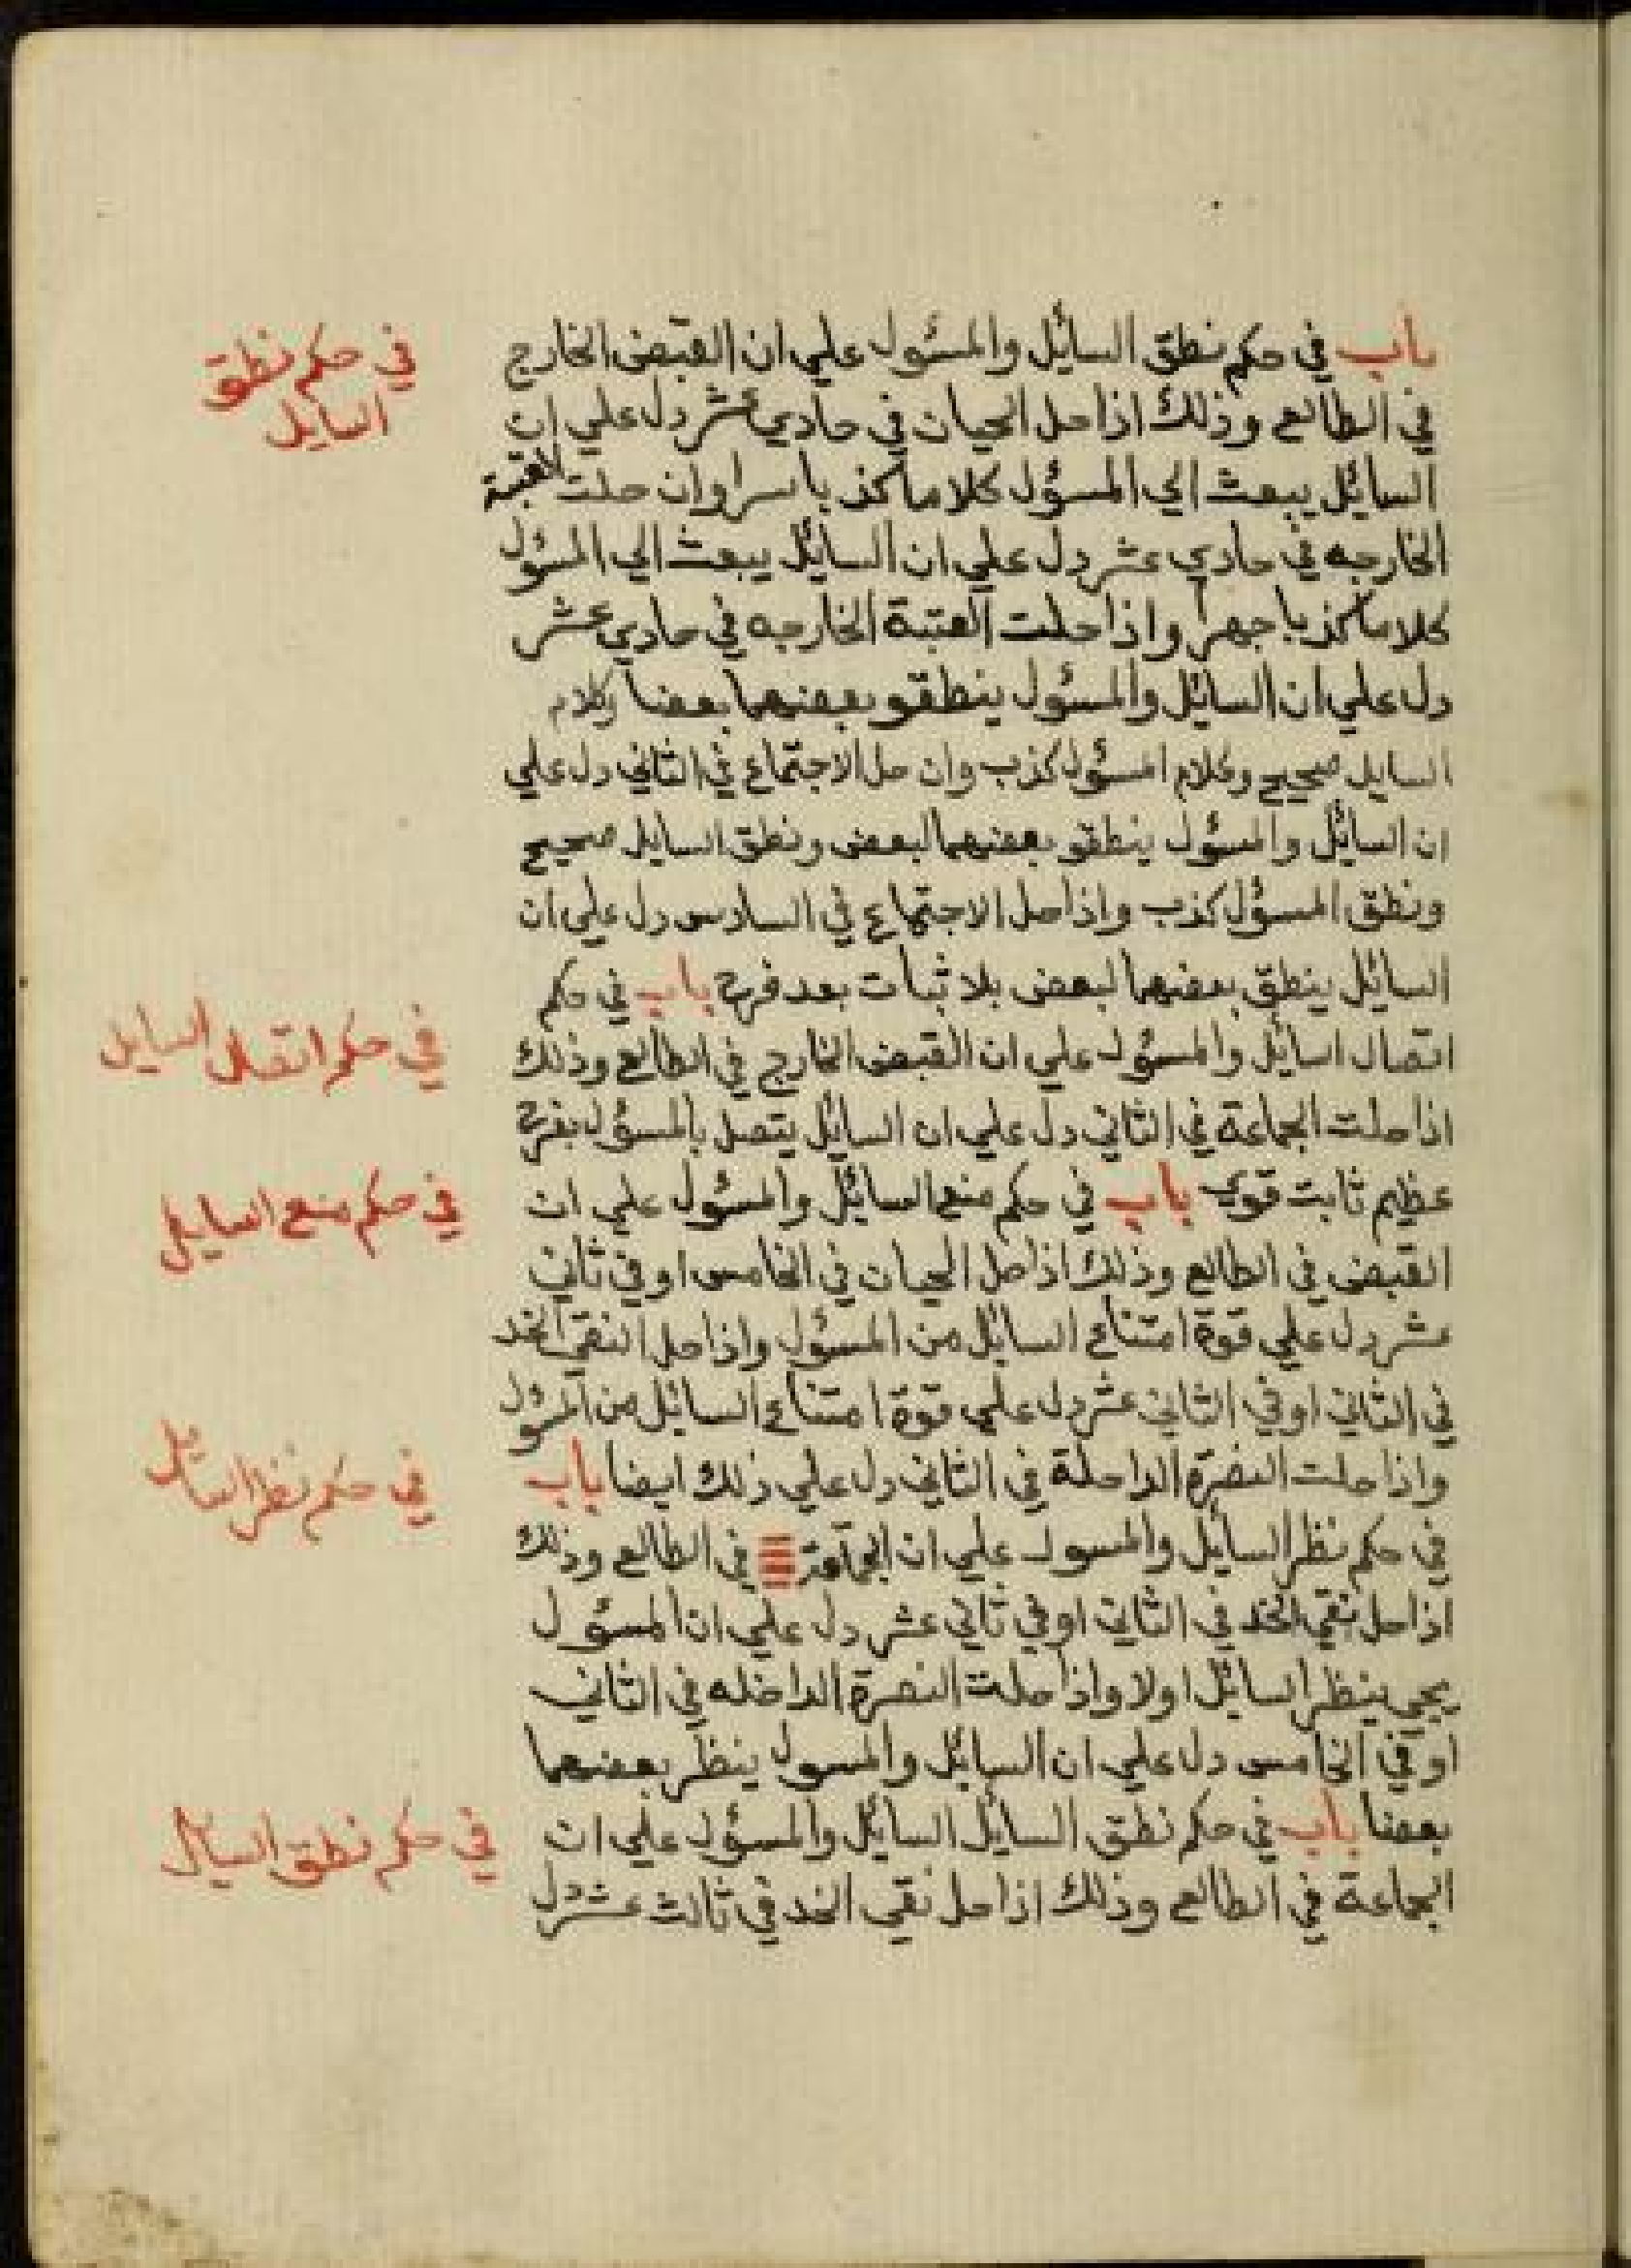 باب في حكم نطق السائل والمسئول علي ان القبض الخارج
في الطالع وذلك اذا حل الحيان في حادي عشر دل علي ان
السائل يبعث الي المسؤل كلاما كذبا سرا وان حلت العتبة
الخارجه في حادي عشر دل علي ان السائل يبعث الي المسئول
كلاما كذبا جهرا واذا حلت العتبة الخارجه في حادي عشر
دل علي ان السائل والمسئول ينطقو بعضهما بعضا وكلام
السايل صحيح وكلام المسئول كذب وان حل الاجتماع في الثاني دل علي
ان السائل والمسئول ينطقو بعضهما لبعض ونطق السايل صحيح
ونطق المسؤل كذب واذا حل الاجتماع في السادس دل علي ان
السائل ينطق بعضهما لبعض بلا ثبات بعد فرح باب في حكم
اتصال اسائل والمسئول علي ان القبض الخارج في الطالع وذلك
اذا حلت الجماعة في الثاني دل علي ان السائل يتصل بالمسؤل بفرح
عظيم ثابت قوي باب في حكم منع السائل والمسئول علي ان
القبض في الطالع وذلك اذا حل الحيان في الخامس او في ثاني
عشر دل علي قوة امتناع السائل من المسئول واذا حل النقي الخد
في الثاني او في الثاني عشر دل علي قوة امتناع السائل من المسؤل
واذا حلت النصرة الداخلة في الثاني دل علي ذلك ايضا باب
في حكم نظر السايل والمسول علي ان الجماعة في الطالع وذلك
اذا حل نقي الخد في الثاني او في ثاني عشر دل علي ان المسئول
يجي ينظر السائل اولا واذا حلت النصرة الداخله في الثاني
او في الخامس دل علي ان السائل والمسول ينظر بعضهما
بعضا باب في حكم نطق السايل السائل والمسؤل علي ان
الجماعة في الطالع وذلك اذا حل نقي الخد في ثالث عشر دل
في حكم نطق
السايل
في حكم اتصال السايل
في حكم منع السايل
في حكم نظر السائل
في حكم نطق السايل